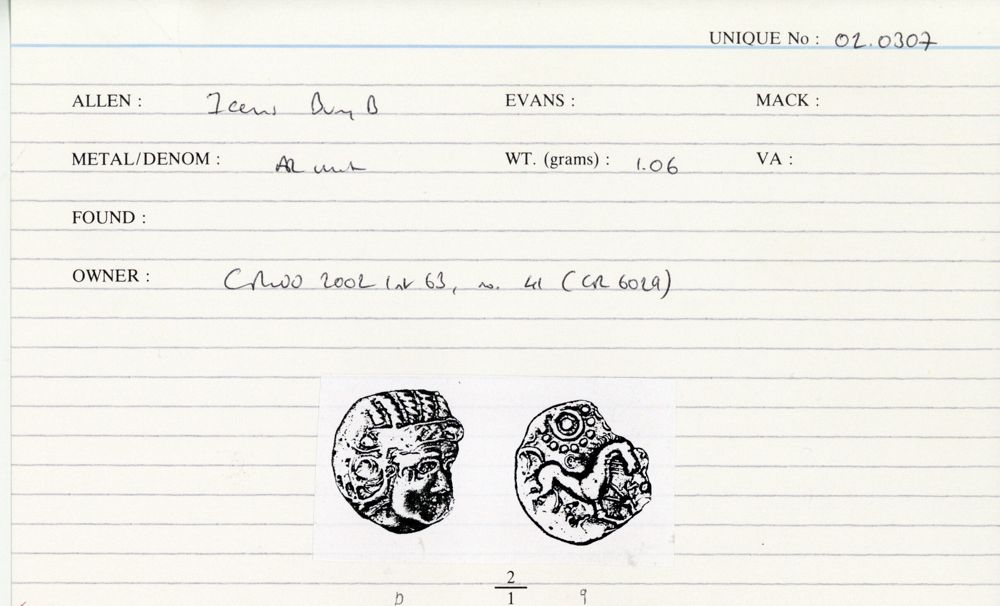 UNIQUE No : 02.0307
ALLEN : Iceni Bury B EVANS : MACK :
METAL/DENOM : AR unit WT. (grams) : 1.06 VA :
FOUND :
OWNER : 2002 63, no. 41 (CR 6029)
2
1